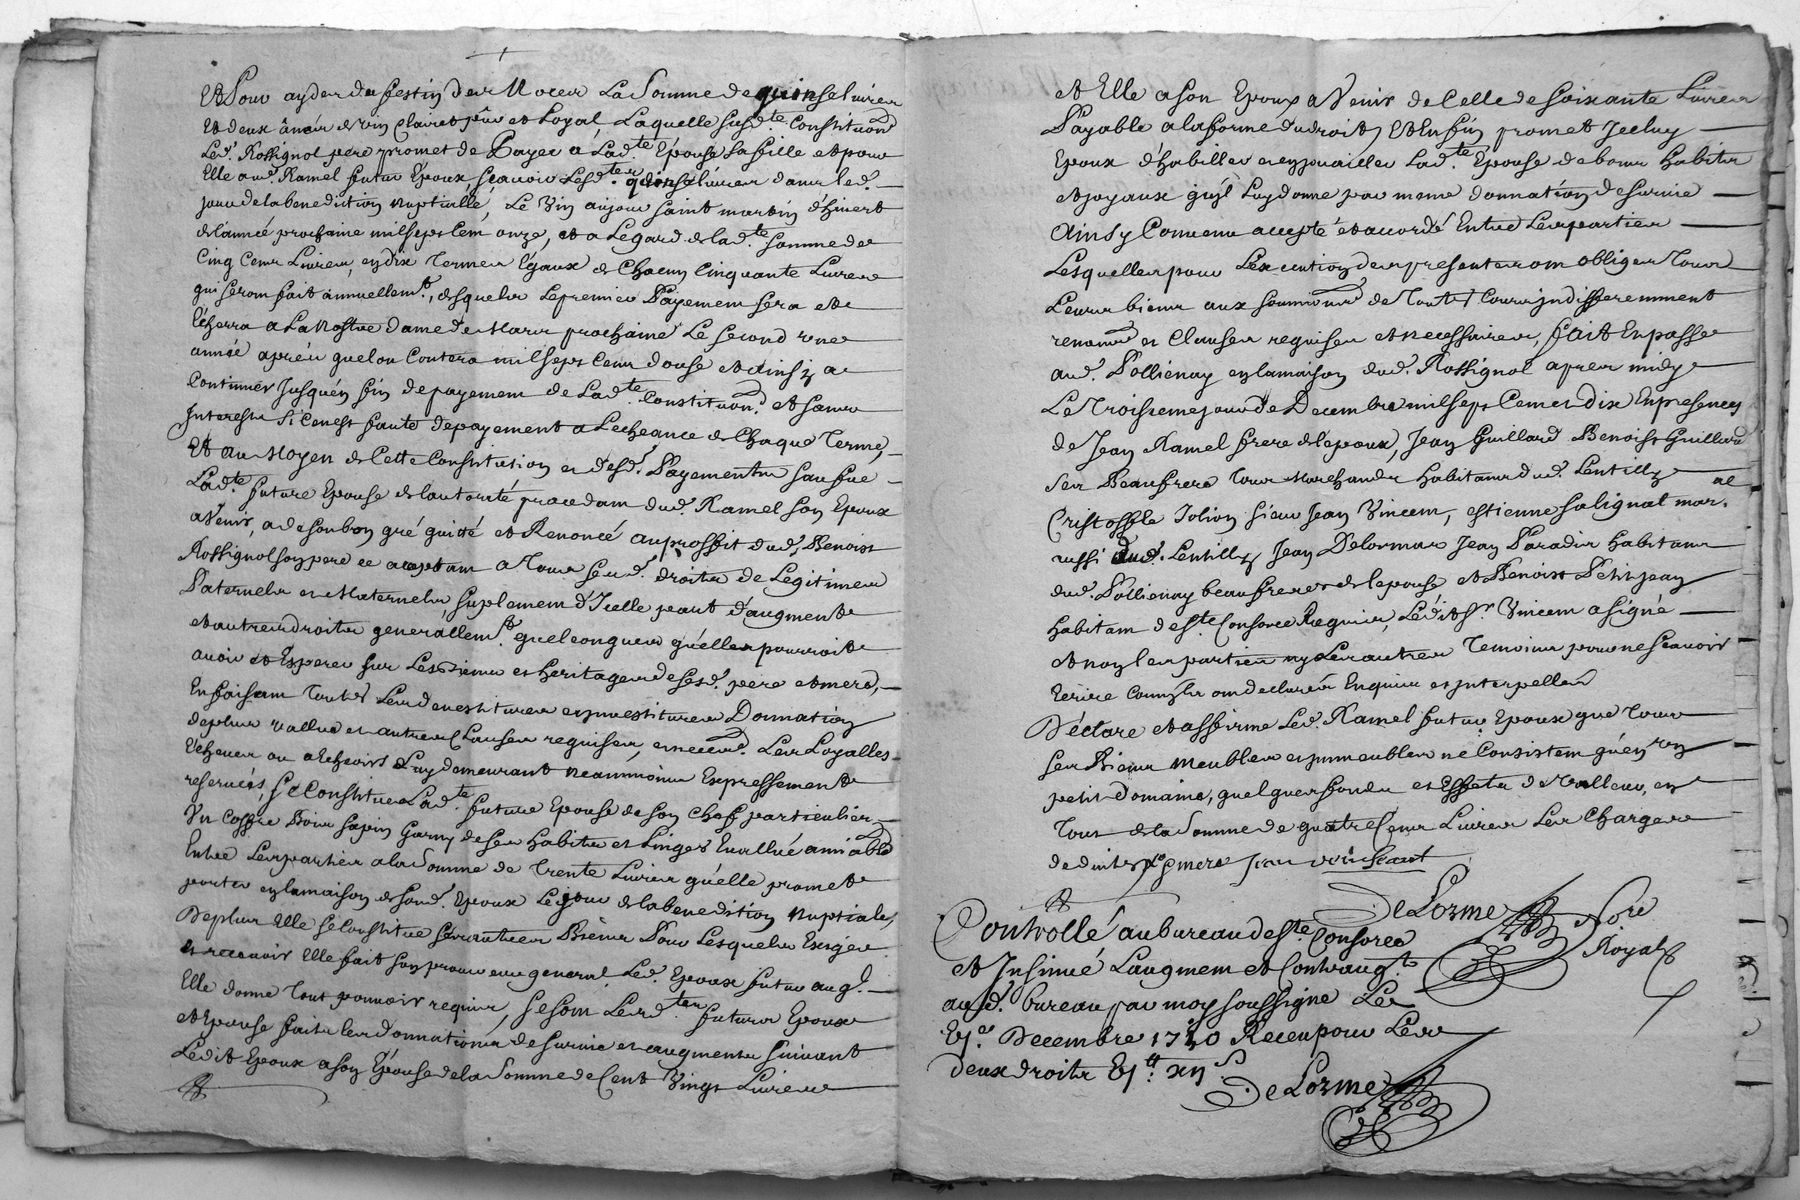 Et Pour ayder du festin des Noces La Somme de quinse livres
Et deux ânées de vin Clairet pur et Loyal Laquelle susd.te Constituon
Led. Rossignol pere promet de Payer a Lad.te Epouse sa fille et pour
Elle aud. Ramel futur Epoux scavoir Lesd.tes quinse livres dans led.
jour de la benediction nuptialle, Le Vin au jour saint martin d'hivert
de l'année prochaine mil sept cent onze, et a Legard de lad.te somme de
Cinq Cens Livres, en dix Termes Egaux de Chacun Cinquante Livres
qui seront fait annuellem.t, desquels Le premier Payement sera et
Echerra a La Nostre dame de Mars prochaine Le second une
année aprés quelon Contera mil sept Cens douse et ainsy a
Continuer Jusqu'en fin de payement de Lad.te Constituon. et sans
Interests si ce n'est faute de payement a Lecheance de Chaque Terme,
Et au Moyen de Cette Constitution et desd. Payements sausfue
Lad.te future Epouse de lautorité procedam dud. Ramel son Epoux
a Venir, a de son bon gré quitté et Renoncé au proffit dud. Benoist
Rossignol son pere ce acceptam a Tous seud. droits de Legitimes
Paternels et Maternels, suplemem d'Icelle peart d'augment
et autres droits generallem.t quelconques qu'elles pourroit
avoir et Esperer sur Les Biens et heritages de sesd. pere et mere,
En faisam Toutes Les devestitures et jnvestitures Donnation
de plus vallue et autres Clauses requises, et necess. Les Loyalles
Echeues ou a Echeoirs Luy demeurant neanmoins Expressement
reservées, Se Constitue Lad.te future Epouse de son Chef particulier
Un Coffre Bois sapin Garny de ses habits et Linges Evallué amiablt
Entre Les parties a la Somme de Trente Livres qu'elle promet
porter en la maison de sond. Epoux Le jour de la benedition Nuptiale,
De plus Elle se Constitue ses autres Biens Pour Lesquels Exiger
et recevoir Elle fait son procureur general Led. Epoux futur auql.
Elle donne Tout pouvoir requis, se som Lesd.tes futurs Epoux
et Epouse faits les donnations de survie et augments suivant
Ledit Epoux a son Epouse de la Somme de Cent Vingt Livres
et Elle a son Epoux a Venir de Celle de soixante Livres
Payable a la forme du droit, Et Enfin promet Jcelluy
Epoux d'habiller et enjouailler Lad.te Epouse de bons habits
et joyaux qu'jl Luy donne par mme donnation de survie
Ainsy Convenu accepté et accordé Entre Les parties
Lesquelles pour L'execution des presentes om obliger Tous
Leurs biens aux soumions de Toutes Cours jndifferemment
renon et Clauses requises et necessaires, fait En passe
aud. Pollienay en la maison dud. Rossignol apres midy
Le Troisieme jour de Decembre mil sept Cens et dix En presences
de Jean Ramel frere de l'epoux, Jean Guillard Benoist Guillard
ses Beaufrere Tous Marchands habitans dud. Lentilly
Cristoffle Jolion sieur Jean Vincem, estienne salignat mar.al
aussi dud. Lentilly Jean Delormas Jean Paradis habitans
dud. Pollienay beaufreres de lepouse et Benoist Petitjean
habitam de s.te Consorce Requis, Ledit s.r Vincem a signé
et non les parties ny Les autres Temoins pour ne scavoir
Ecrire Comm'jls om declarés Enquis et jnterpellés
Déclare et affirme Led. Ramel futur Epoux que Tous
ses Biens meubles et jmmeubles ne Consistem qu'en un
petit Domaine, quelques fonds et Effets de Valleur, en
Tous de la Somme de quatre Cens Livres Les Charges
deduites
De Lorme No.re
Royal
Controllé au bureau de s.te Consorce
et Insinué Laugmem et Contraug.t
aud. bureau par moy soussigné Le
Ej.e Decembre 1710 Receu pour Les
deux droits Ej.tt xij s.
De Lorme